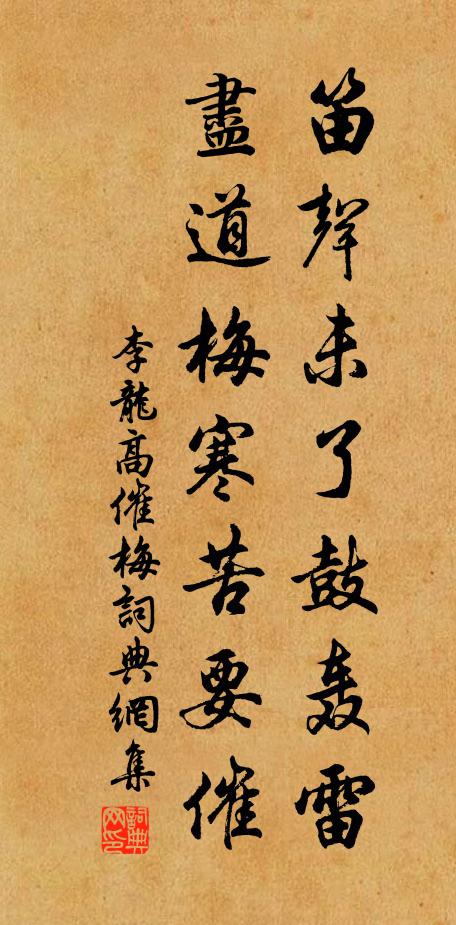 笛聲未了鼓轰雷
盡道梅寒苦要催
李龍高催梅詞典網集
詞典网印